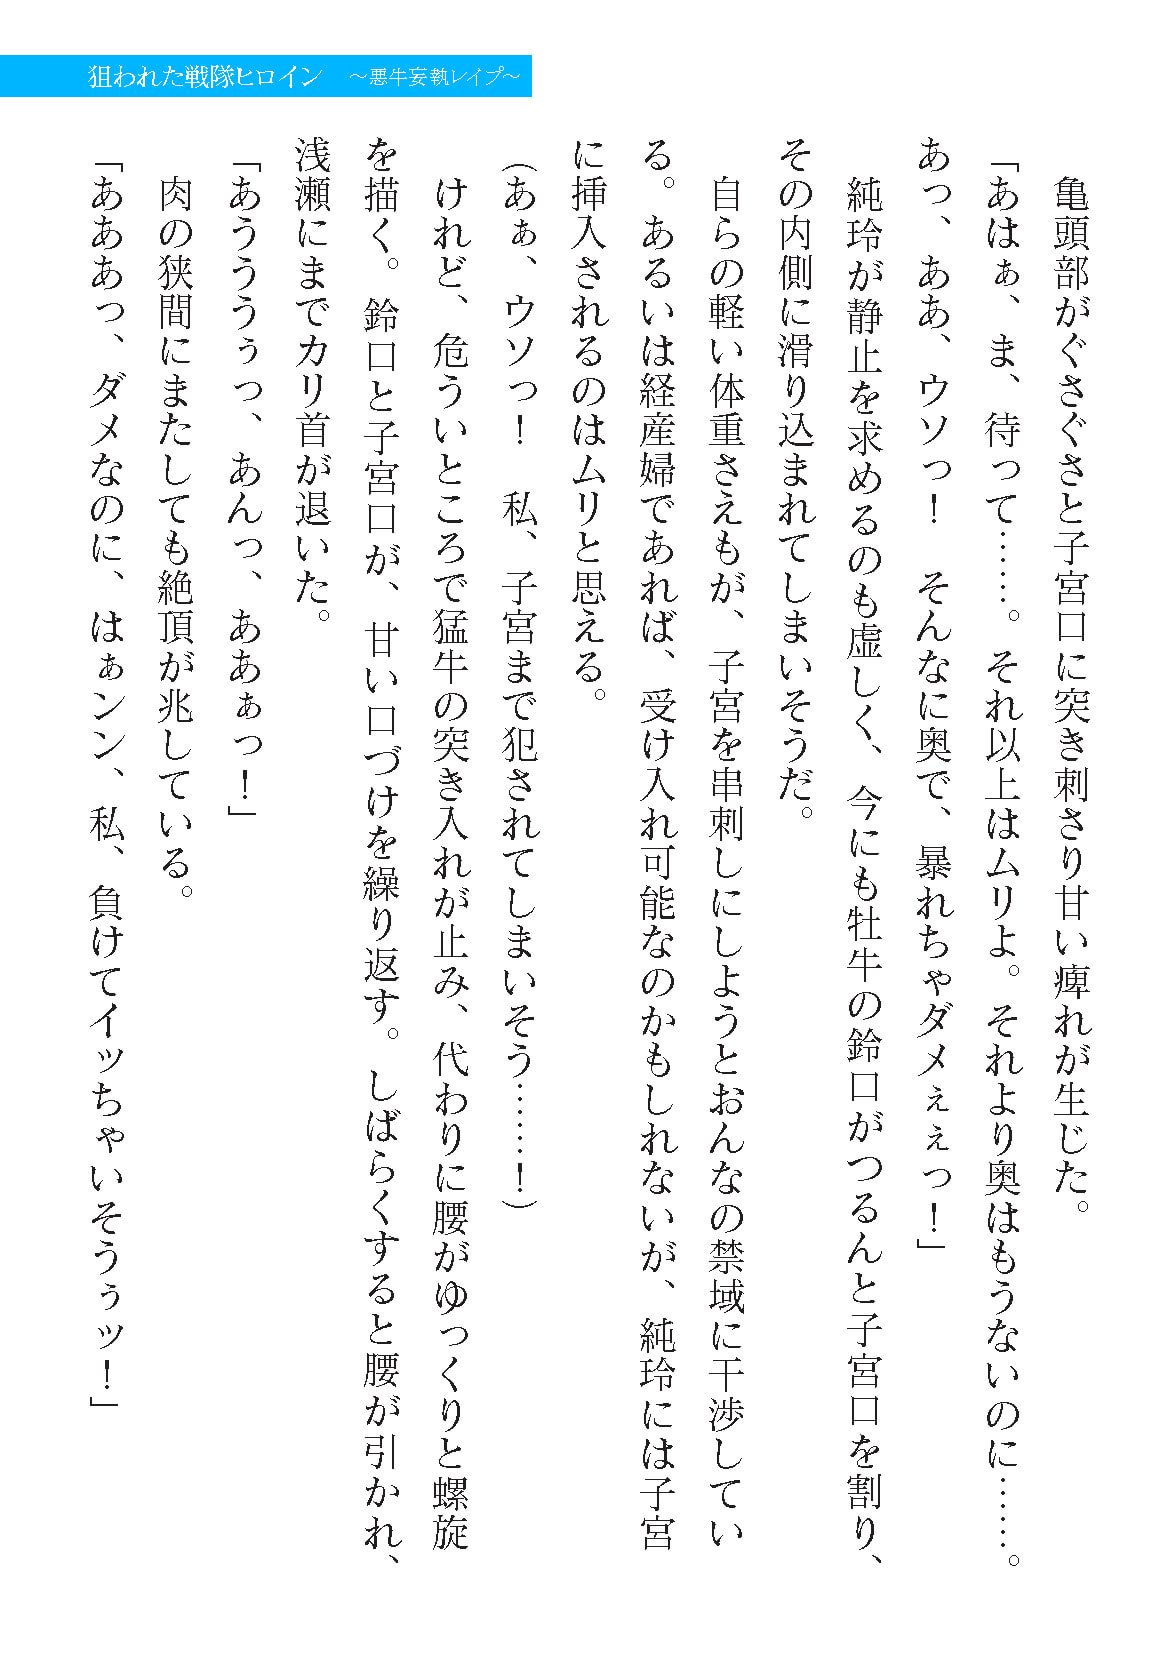 狙われた戦隊ヒロイン　～悪牛妄執レイプ～
亀頭部がぐさぐさと子宮口に突き刺さり甘い痺れが生じた。
「あはぁ、ま、待って……。それ以上はムリよ。それより奥はもうないのに……。
あっ、ああ、ウソっ！　そんなに奥で、暴れちゃダメぇぇっ！」
純玲が静止を求めるのも虚しく、今にも牡牛の鈴口がつるんと子宮口を割り、
その内側に滑り込まれてしまいそうだ。
自らの軽い体重さえもが、子宮を串刺しにしようとおんなの禁域に干渉してい
る。あるいは経産婦であれば、受け入れ可能なのかもしれないが、純玲には子宮
に挿入されるのはムリと思える。
（あぁ、ウソっ！　私、子宮まで犯されてしまいそう……！）
けれど、危ういところで猛牛の突き入れが止み、代わりに腰がゆっくりと螺旋
を描く。鈴口と子宮口が、甘い口づけを繰り返す。しばらくすると腰が引かれ、
浅瀬にまでカリ首が退いた。
「あうううぅっ、あんっ、ああぁっ！」
肉の狭間にまたしても絶頂が兆している。
「あああっ、ダメなのに、はぁンン、私、負けてイッちゃいそうぅッ！」